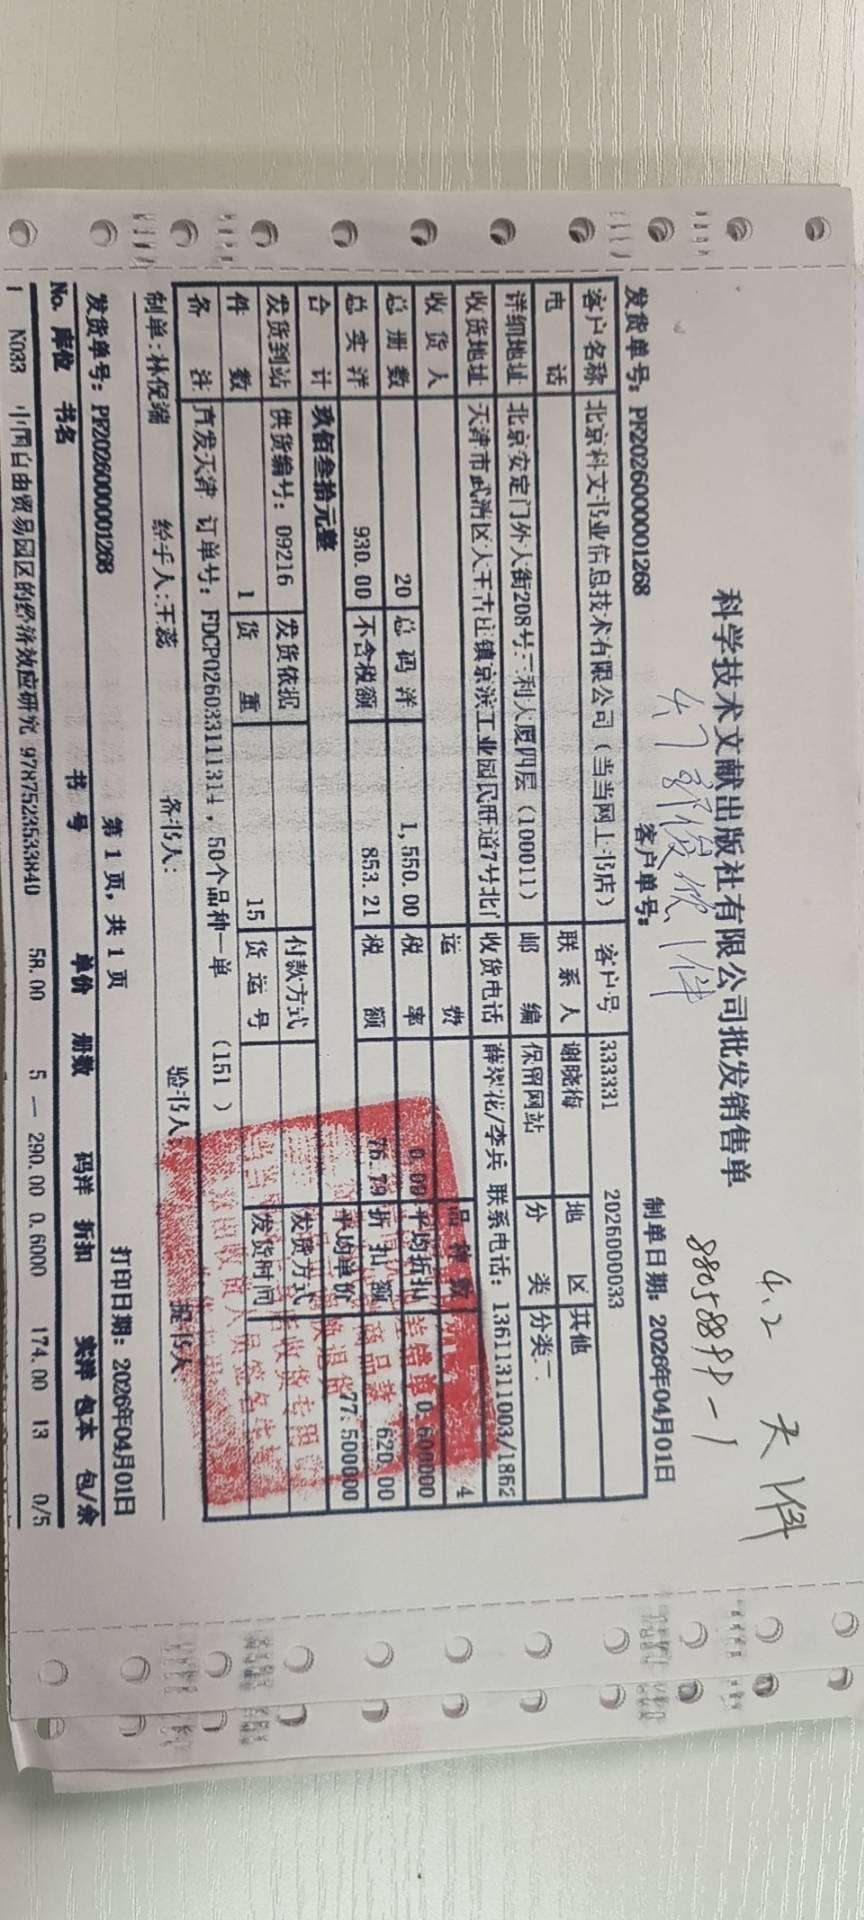 4.2 大1件
8805889P-1
科学技术文献出版社有限公司批发销售单
发货单号: PF2026000001268 客户单号: 制单日期: 2026年04月01日
客户名称 北京科文书业信息技术有限公司（当当网上书店） 客户号 333331 2026000033
电 话 联系人 谢晓梅 地 区 其他
详细地址 北京安定门外大街208号三利大厦四层（100011） 邮 编 保留网站 分 类 分类二
收货地址 天津市武清区大王古庄镇京滨工业园民旺道7号北门 收货电话 薛翠花/李兵 联系电话: 13611311003/1862
收 货 人 运 费 品 种 数 4
总 册 数 20 总 码 洋 1,550.00 税 率 0.09 平均折扣 0.600000
总 实 洋 930.00 不含税额 853.21 税 额 76.79 折 扣 额 620.00
合 计 玖佰叁拾元整 平均单价 77.500000
发货到站 供货编号: 09216 发货依据 付款方式 发货方式
件 数 1 货 重 15 货 运 号 发货时间
备 注 直发天津 订单号: FDCP026033111314, 50个品种一单 （151 ）
制单:林俊端 经手人:王蕊 备书人: 验书人: 提书人:
第 1 页, 共 1 页 打印日期: 2026年04月01日
发货单号: PF2026000001268
No. 库位 书名 书 号 单价 册数 码洋 折扣 实洋 包本 包/余
1 N033 中国自由贸易园区的经济效应研究 9787523533840 58.00 5 — 290.00 0.6000 174.00 13 0/5